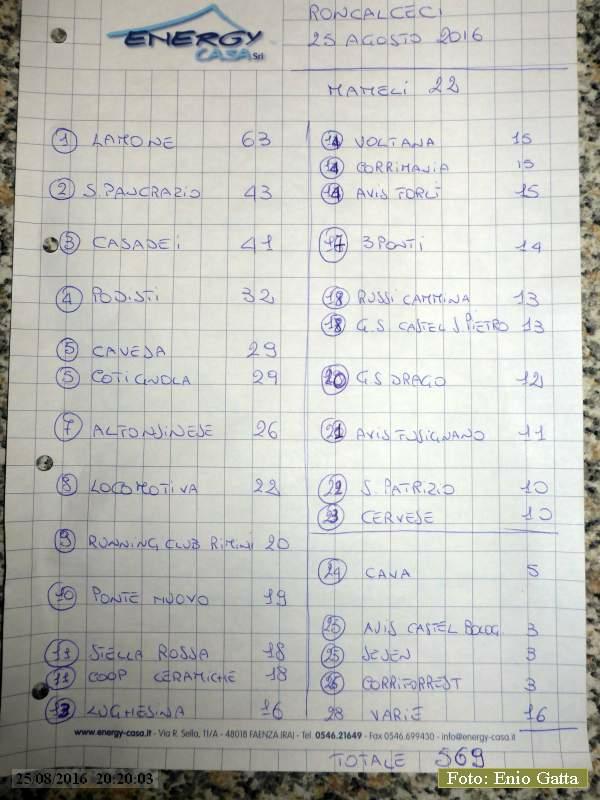 ENERGY
CASA Srl
RONCALCECI
25 AGOSTO 2016
MAMELI 22
1 LAMONE 63
2 S. PANCRAZIO 43
3 CASADEI 41
4 PODISTI 32
5 CAVEJA 29
5 COTIGNOLA 29
7 ALFONSINESE 26
8 LOCOMOTIVA 22
9 RUNNING CLUB RIMINI 20
10 PONTE NUOVO 19
11 STELLA ROSSA 18
11 COOP CERAMICHE 18
13 LUGHESINA 16
14 VOLTANA 15
14 CORRIMANIA 15
14 AVIS FORLÌ 15
17 3 PONTI 14
18 RUSSI CAMMINA 13
18 G.S. CASTEL S PIETRO 13
20 G.S DRAGO 12
21 AVIS FUSIGNANO 11
22 S. PATRIZIO 10
CERVESE 10
24 CAVA 5
25 AVIS CASTEL BOLOG. 3
25 SEVEN 3
26 CORRIFORREST 3
28 VARIE 16
www.energy-casa.it - Via R. Sella, 11/A - 48018 FAENZA (RA) - Tel 0546.21649 - Fax 0546.699430 - info@energy-casa.it
TOTALE 569
25/08/2016 20:20:03
Foto: Enio Gatta